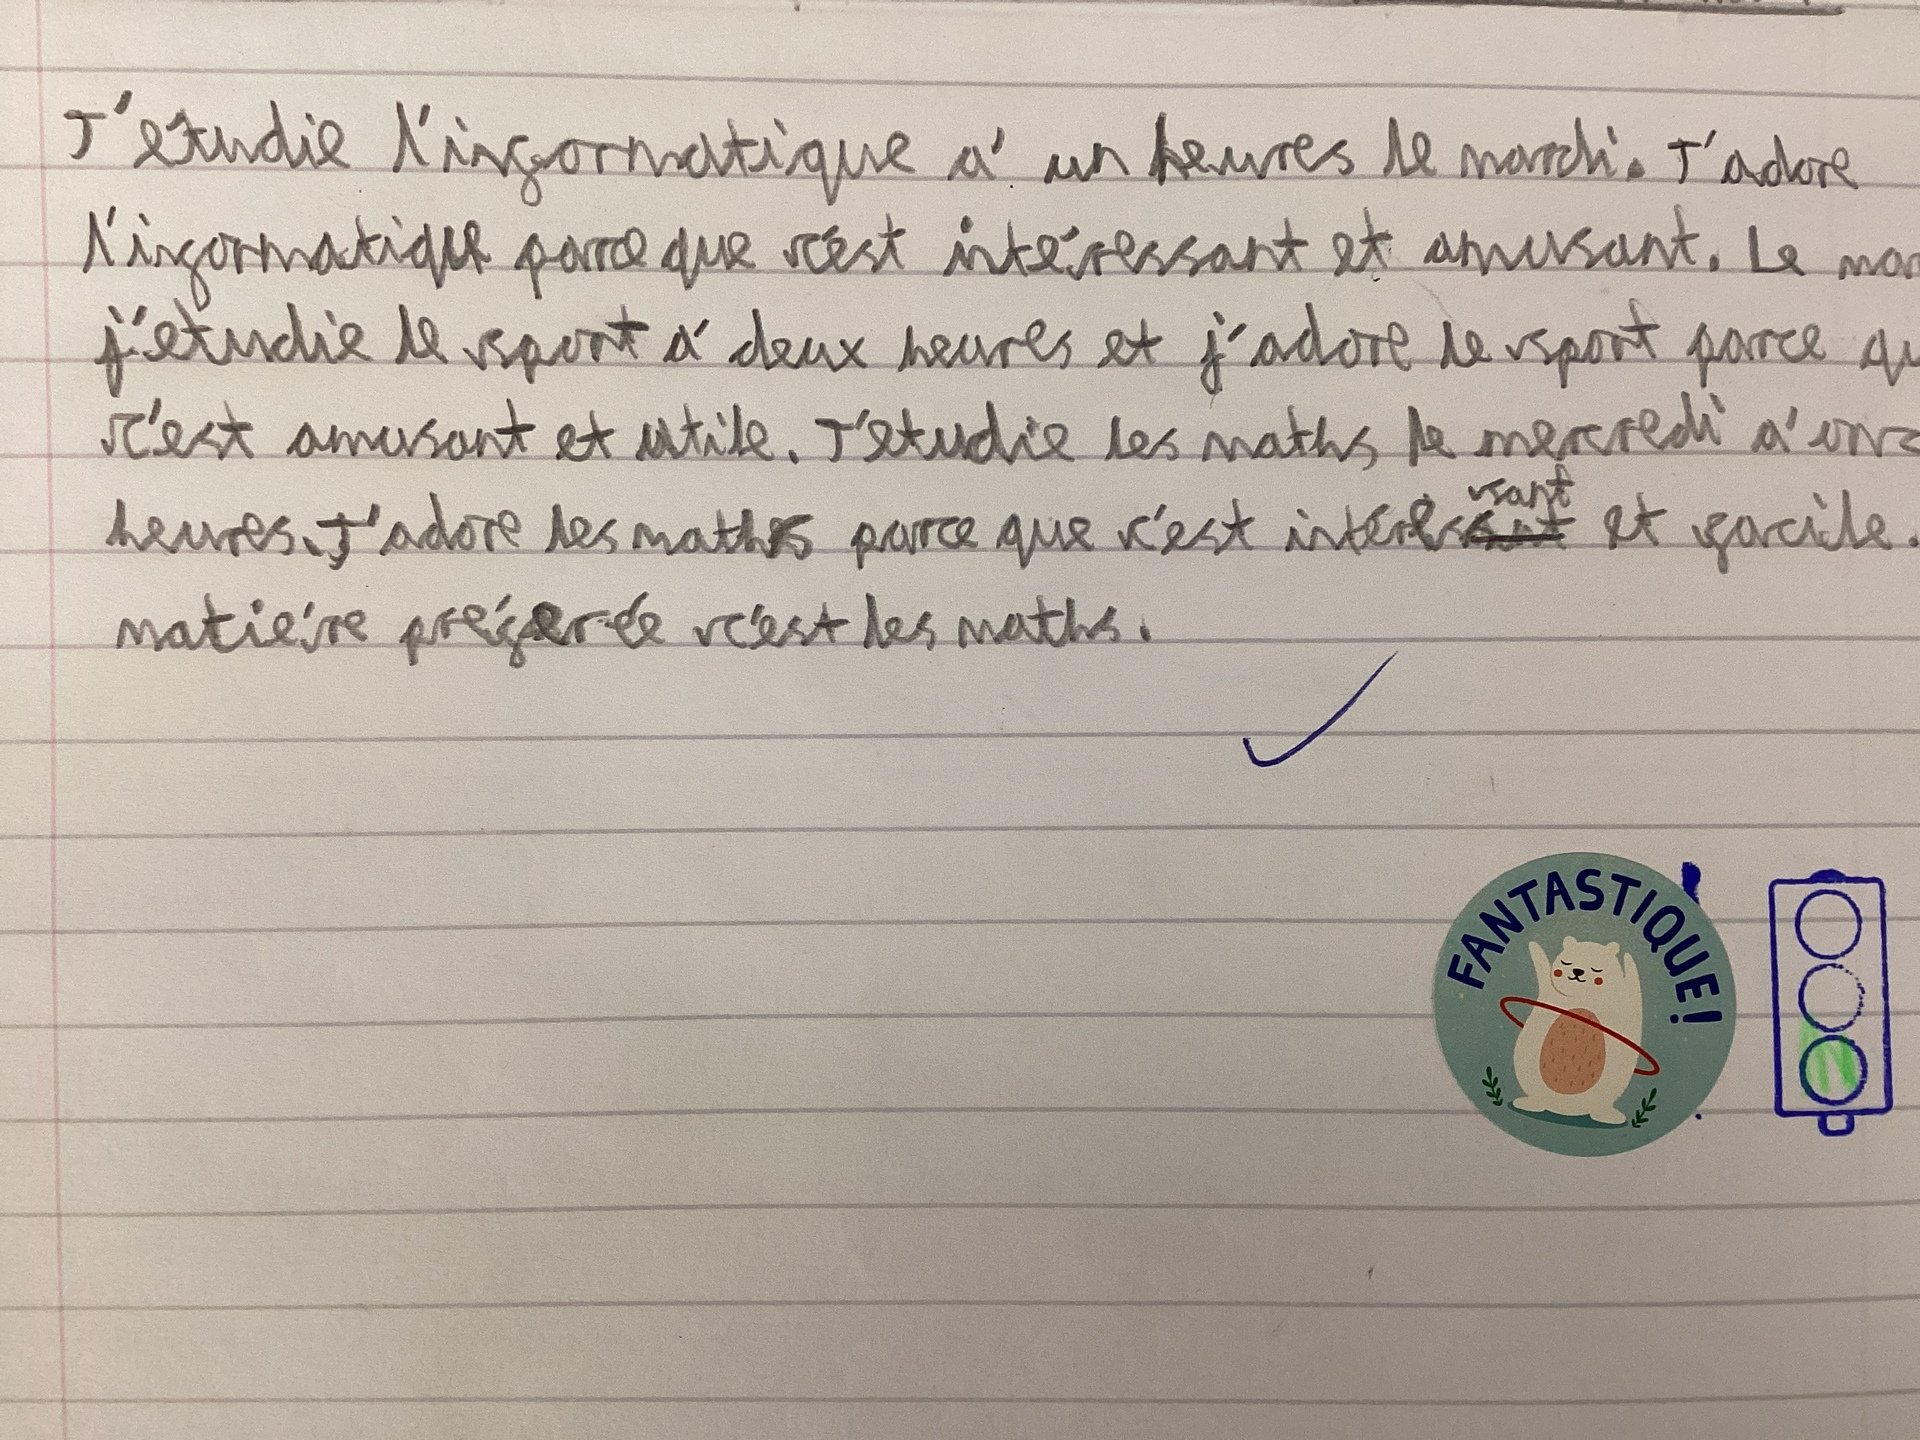 J'étudie l'informatique á un heures le mardi. J'adore
l'informatique parce que c'est intéressant et amusant. Le mar
j'étudie le sport á deux heures et j'adore le sport parce qu
c'est amusant et utile. J'étudie les maths le mercredi á onz
heures. J'adore les maths parce que c'est intéressant et facile.
matiére préferée c'est les maths.
FANTASTIQUE!